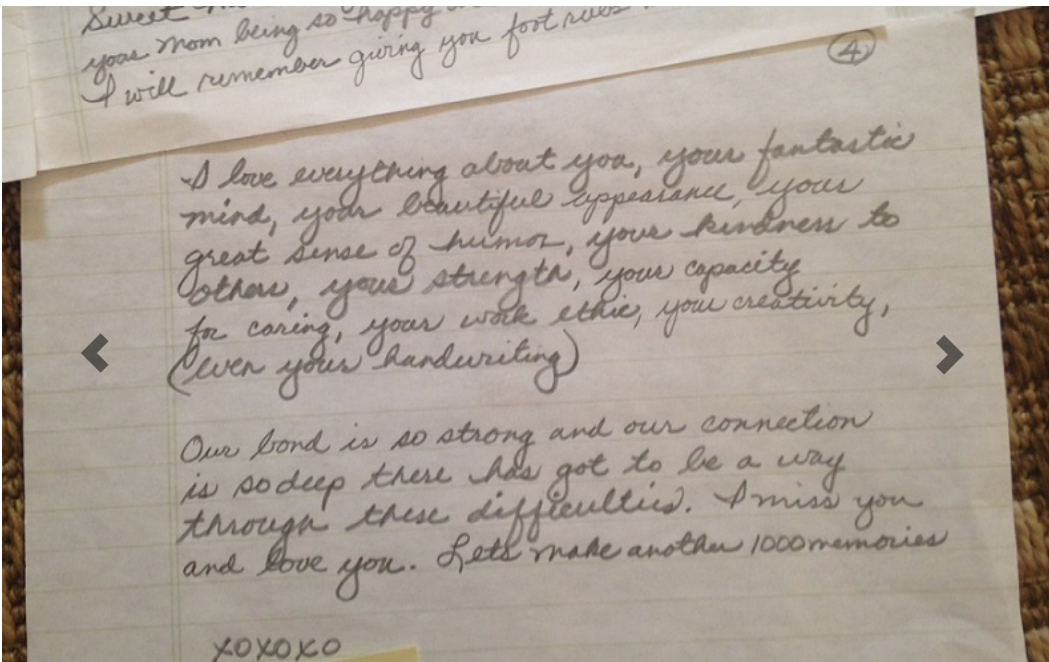 Sweet
your Mom being so happy
I will remember giving you foot rubs
4
I love everything about you, your fantastic
mind, your beautiful appearance, your
great sense of humor, your kindness to
others, your strength, your capacity
for caring, your work ethic, your creativity,
(even your handwriting)
Our bond is so strong and our connection
is so deep there has got to be a way
through these difficulties. I miss you
and love you. Lets make another 1000 memories
xoxoxo